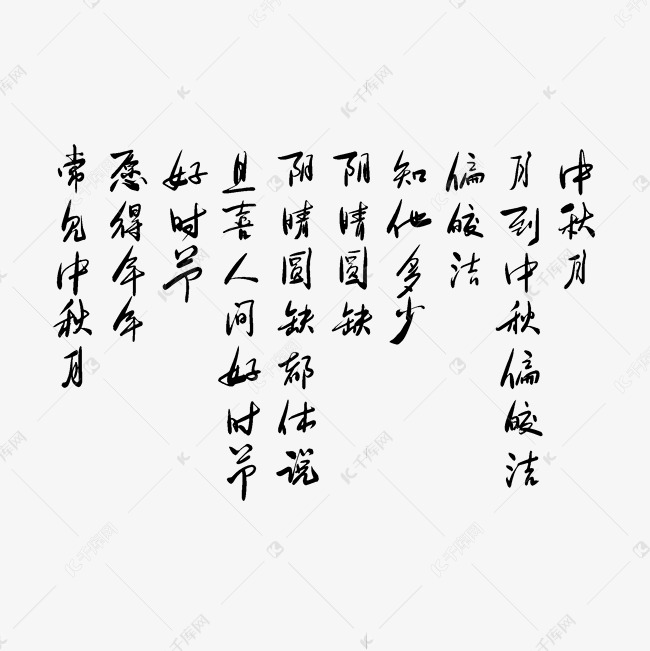 中秋月
月到中秋偏皎洁
偏皎洁
知他多少
阴晴圆缺
阴晴圆缺都休说
且喜人间好时节
好时节
愿得年年
常见中秋月
千库网